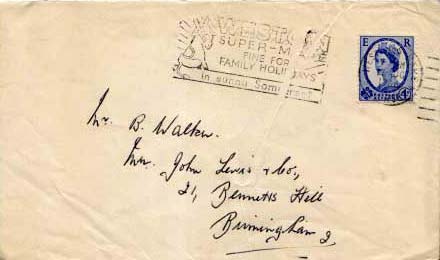 WESTON
SUPER-M
FINE FOR
FAMILY HOLIDAYS
in sunny Somerset
E R
Mr. B. Walker.
John Lewis & Co.,
21, Bennetts Hill
Birmingham 2